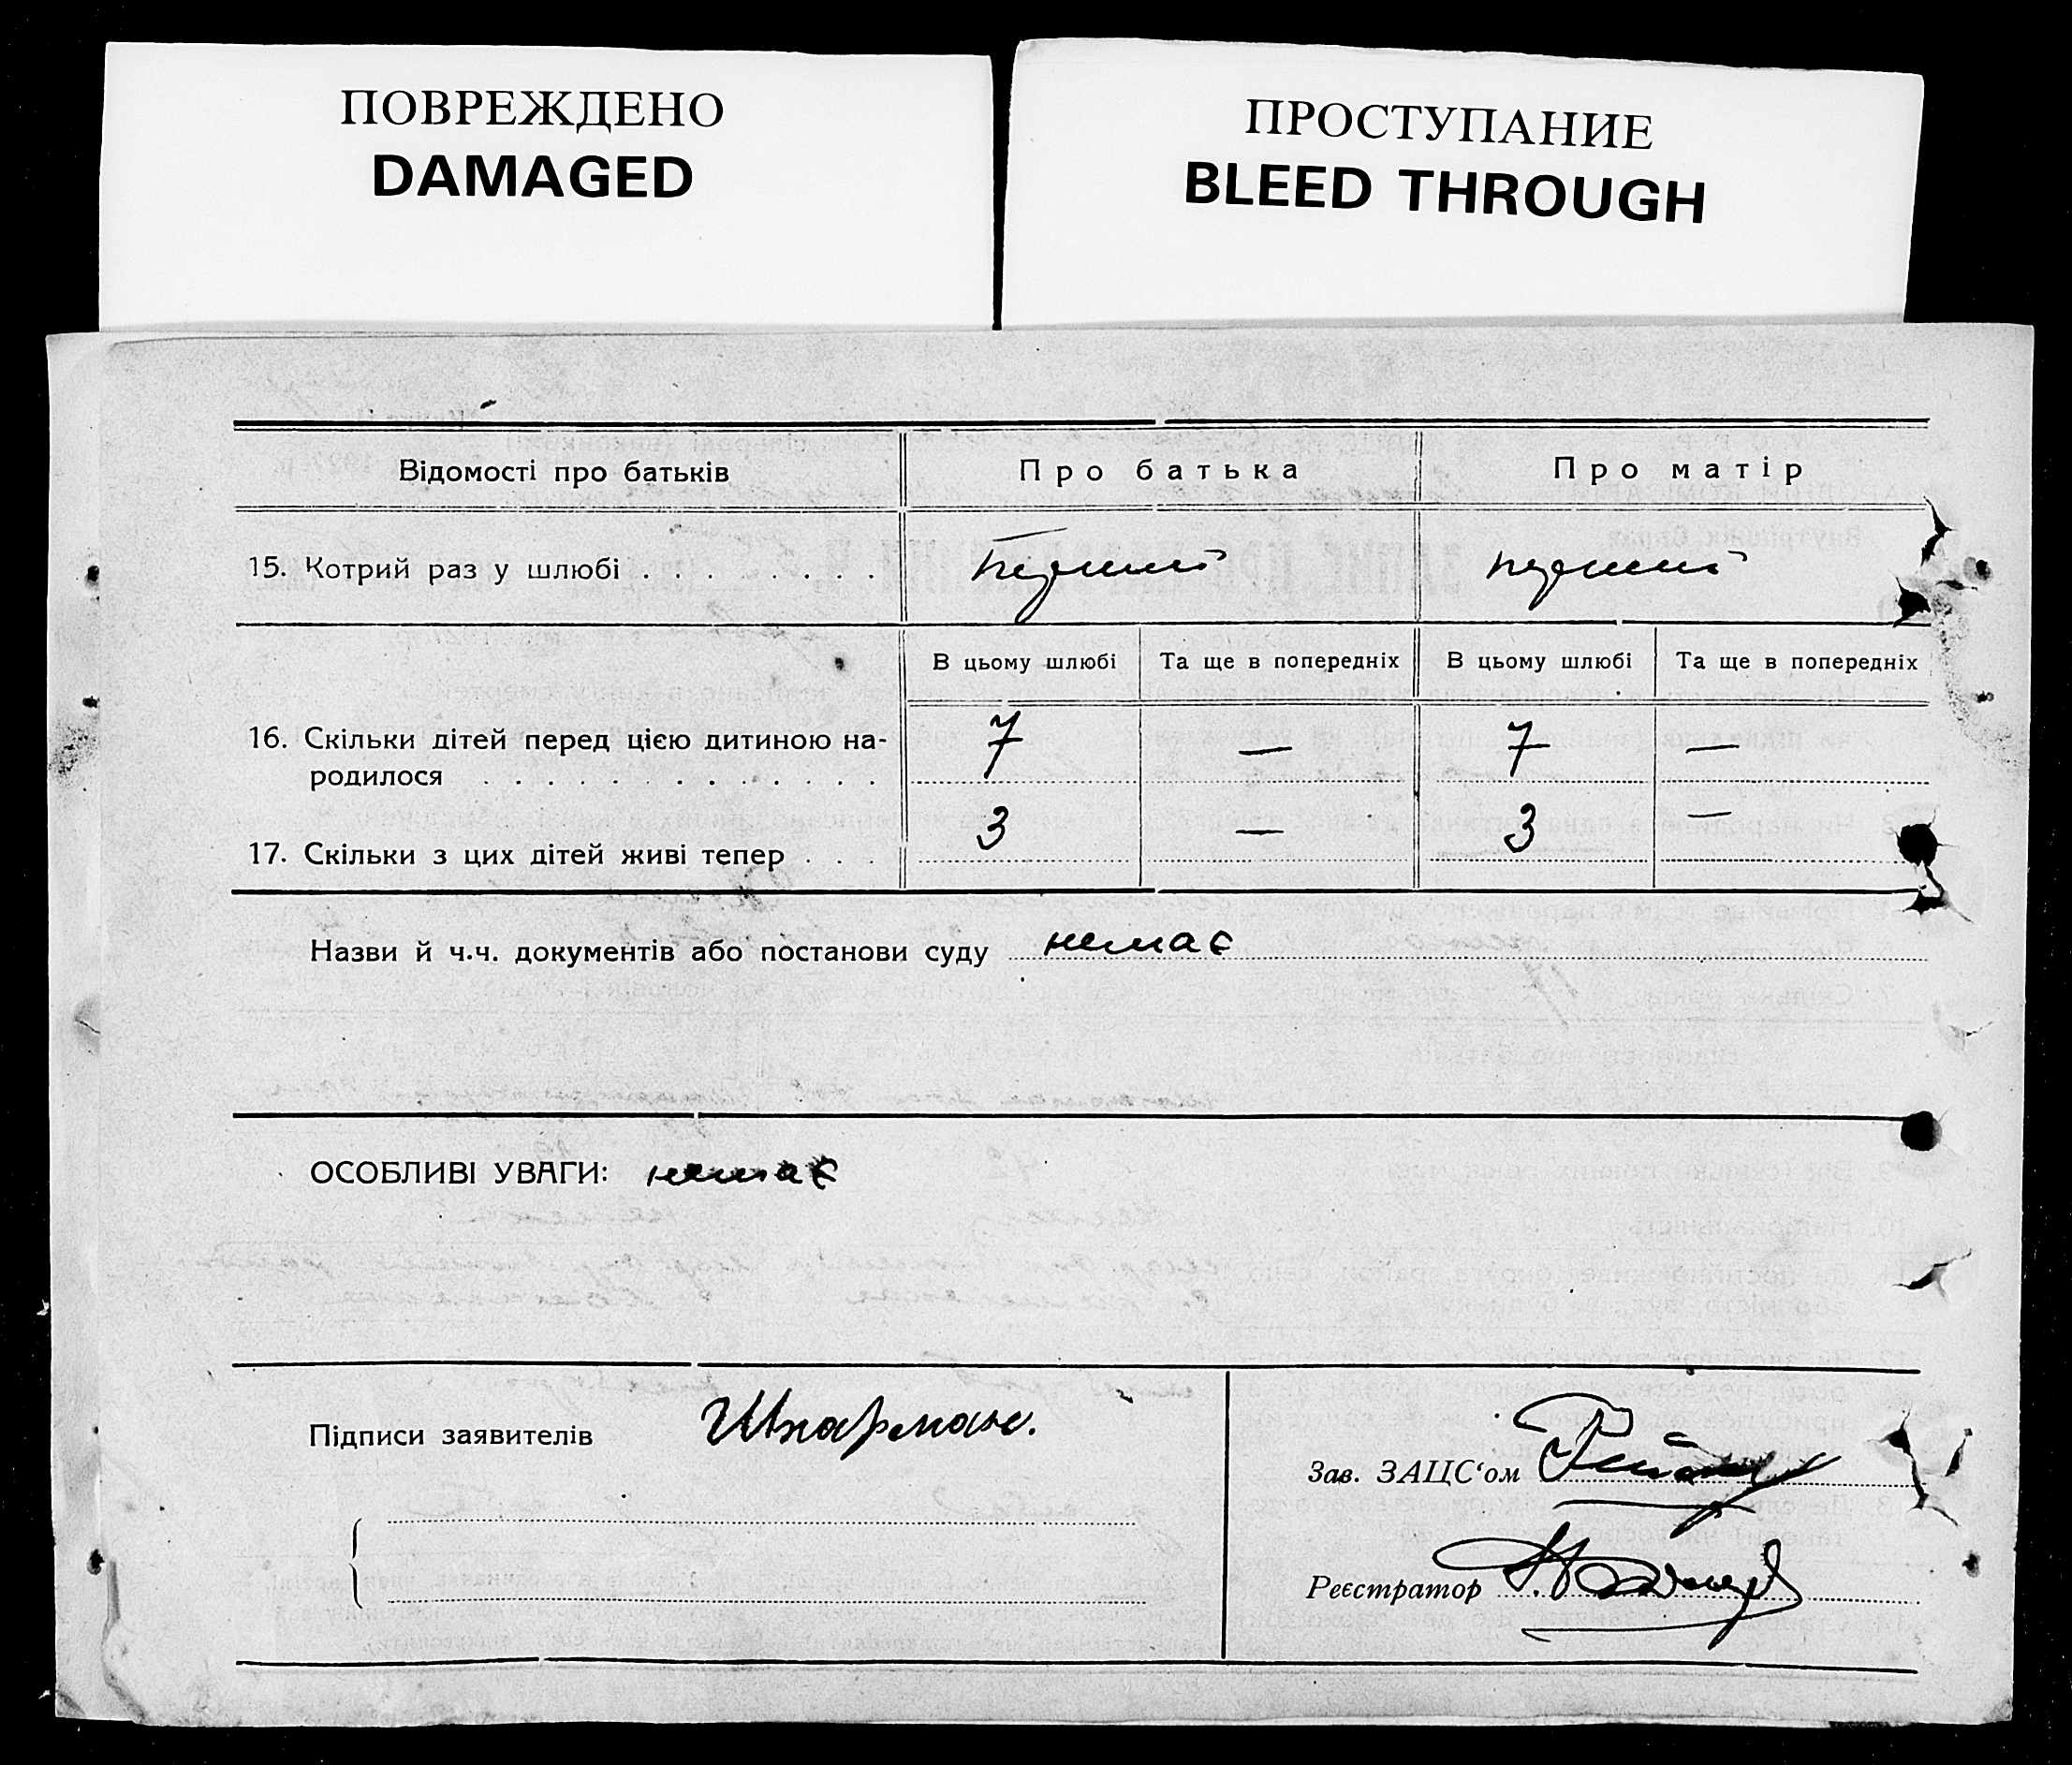 ПОВРЕЖДЕНО
DAMAGED
ПРОСТУПАНИЕ
BLEED THROUGH
Відомості про батьків Про батька Про матір
15. Котрий раз у шлюбі . . . . . . . . Перший перший
В цьому шлюбі Та ще в попередніх В цьому шлюбі Та ще в попередніх
16. Скільки дітей перед цією дитиною на-
родилося . . . . . . . . . . . . . 7 — 7 —
17. Скільки з цих дітей живі тепер . . . 3 — 3 —
Назви й ч.ч. документів або постанови суду немає
ОСОБЛИВІ УВАГИ: немає
Підписи заявителів Шпарман.
Зав. ЗАЦС‘ом
Реєстратор